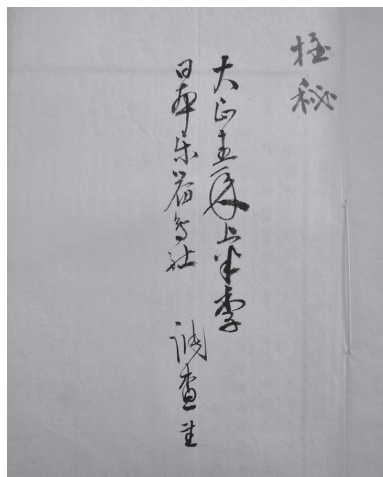 極秘
大正五年上半季
日本楽器会社 調査